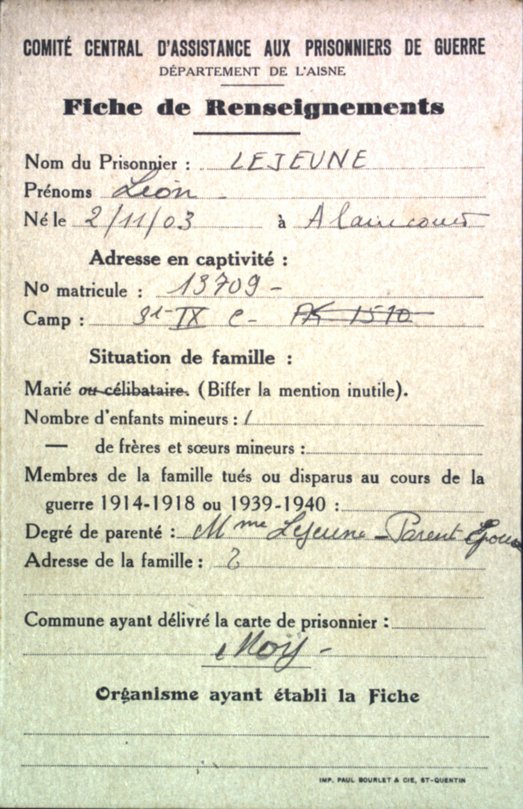 COMITÉ CENTRAL D'ASSISTANCE AUX PRISONNIERS DE GUERRE
DÉPARTEMENT DE L'AISNE
Fiche de Renseignements
Nom du Prisonnier : LEJEUNE
Prénoms Léon
Né le 2/11/03 à Alaincourt
Adresse en captivité :
No matricule : 13709 -
Camp : IX C -
Situation de famille :
Marié ou célibataire. (Biffer la mention inutile).
Nombre d'enfants mineurs : 1
— de frères et sœurs mineurs :
Membres de la famille tués ou disparus au cours de la
guerre 1914-1918 ou 1939-1940 :
Degré de parenté : Mme Lejeune - Parent Epouse
Adresse de la famille :
Commune ayant délivré la carte de prisonnier :
Moÿ -
Organisme ayant établi la Fiche
IMP. PAUL BOURLET & CIE, ST-QUENTIN